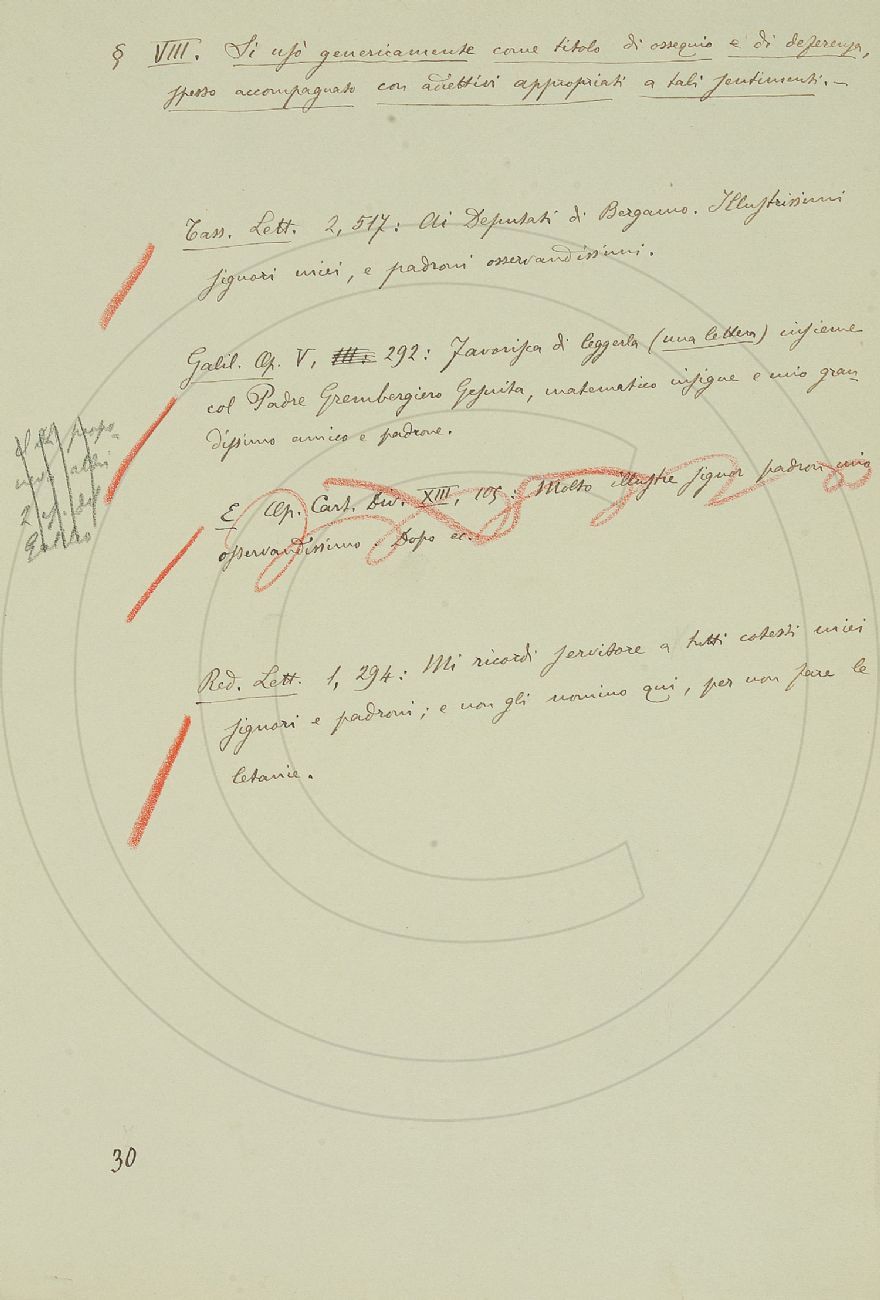 § VIII. Si usò genericamente come titolo di ossequio e di deferenza,
spesso accompagnato con adiettivi appropriati a tali sentimenti. —
Tass. Lett. 2, 517: Ai Deputati di Bergamo. Illustrissimi
signori miei, e padroni osservandissimi.
Galil. Op. V, III. 292: Favorisca di leggerla (una lettera) insieme
col Padre Grembergiero Gesuita, matematico insigne e mio gran-
dissimo amico e padrone.
E Op. Cart. Div. XIII, 105: Molto illustre signor padron mio
osservandissimo. Dopo ec.
Red. Lett. 1, 294: Mi ricordi servitore a tutti cotesti miei
signori e padroni; e non gli nomino qui, per non fare le
letanie.
30